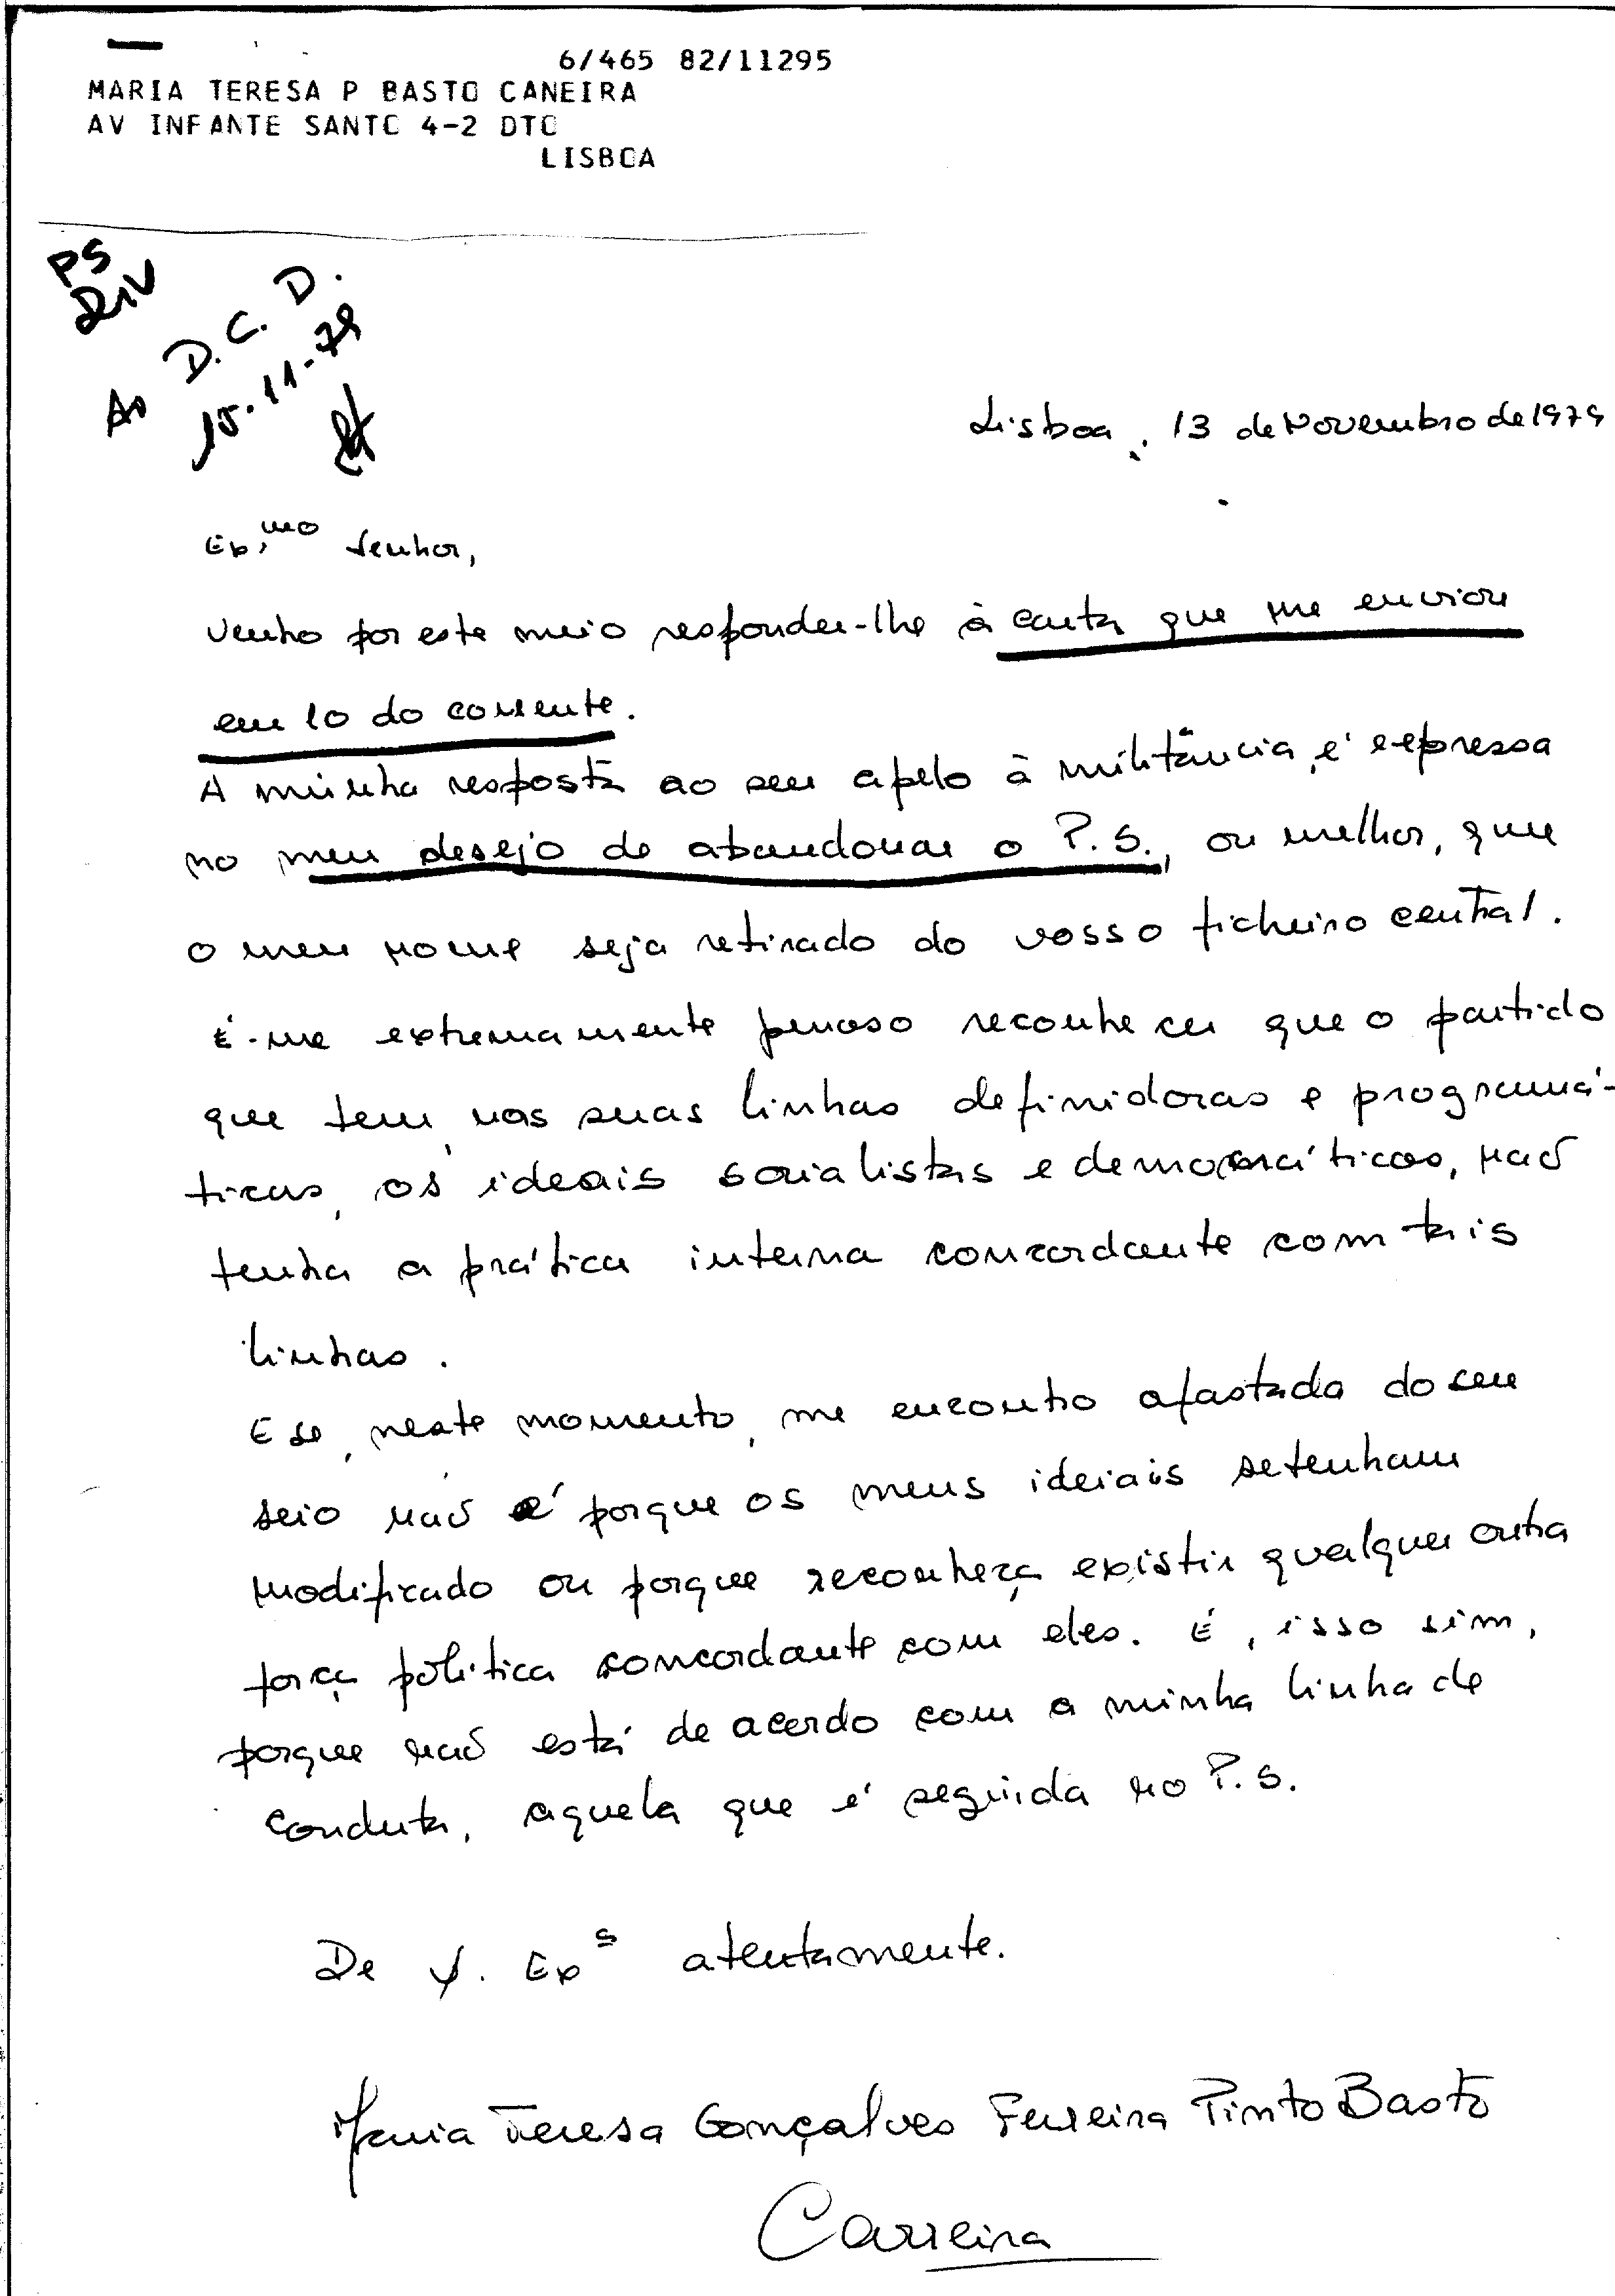 6/465 82/11295
MARIA TERESA P BASTO CANEIRA
AV INFANTE SANTO 4-2 DTO
LISBOA
PS
Div
Ao D.C.D.
15.11-79
Lisboa, 13 de Novembro de 1979
Ex.mo Senhor,
Venho por este meio responder-lhe à carta que me enviou
em 10 do corrente.
A minha resposta ao seu apelo à militância, é expressa
no meu desejo de abandonar o P.S., ou melhor, que
o meu nome seja retirado do vosso ficheiro central.
É-me extremamente penoso reconhecer que o partido
que tem, nas suas linhas definidoras e programá-
ticas, os ideais socialistas e democráticos, não
tenha a prática interna concordante com tais
linhas.
E se, neste momento, me encontro afastada do seu
seio não é porque os meus ideiais se tenham
modificado ou porque reconheça existir qualquer outra
força política concordante com eles. É, isso sim,
porque não está de acordo com a minha linha de
conduta, aquela que é seguida no P.S.
De V. Exs atentamente.
Maria Teresa Gonçalves Ferreira Pinto Basto
Carreira